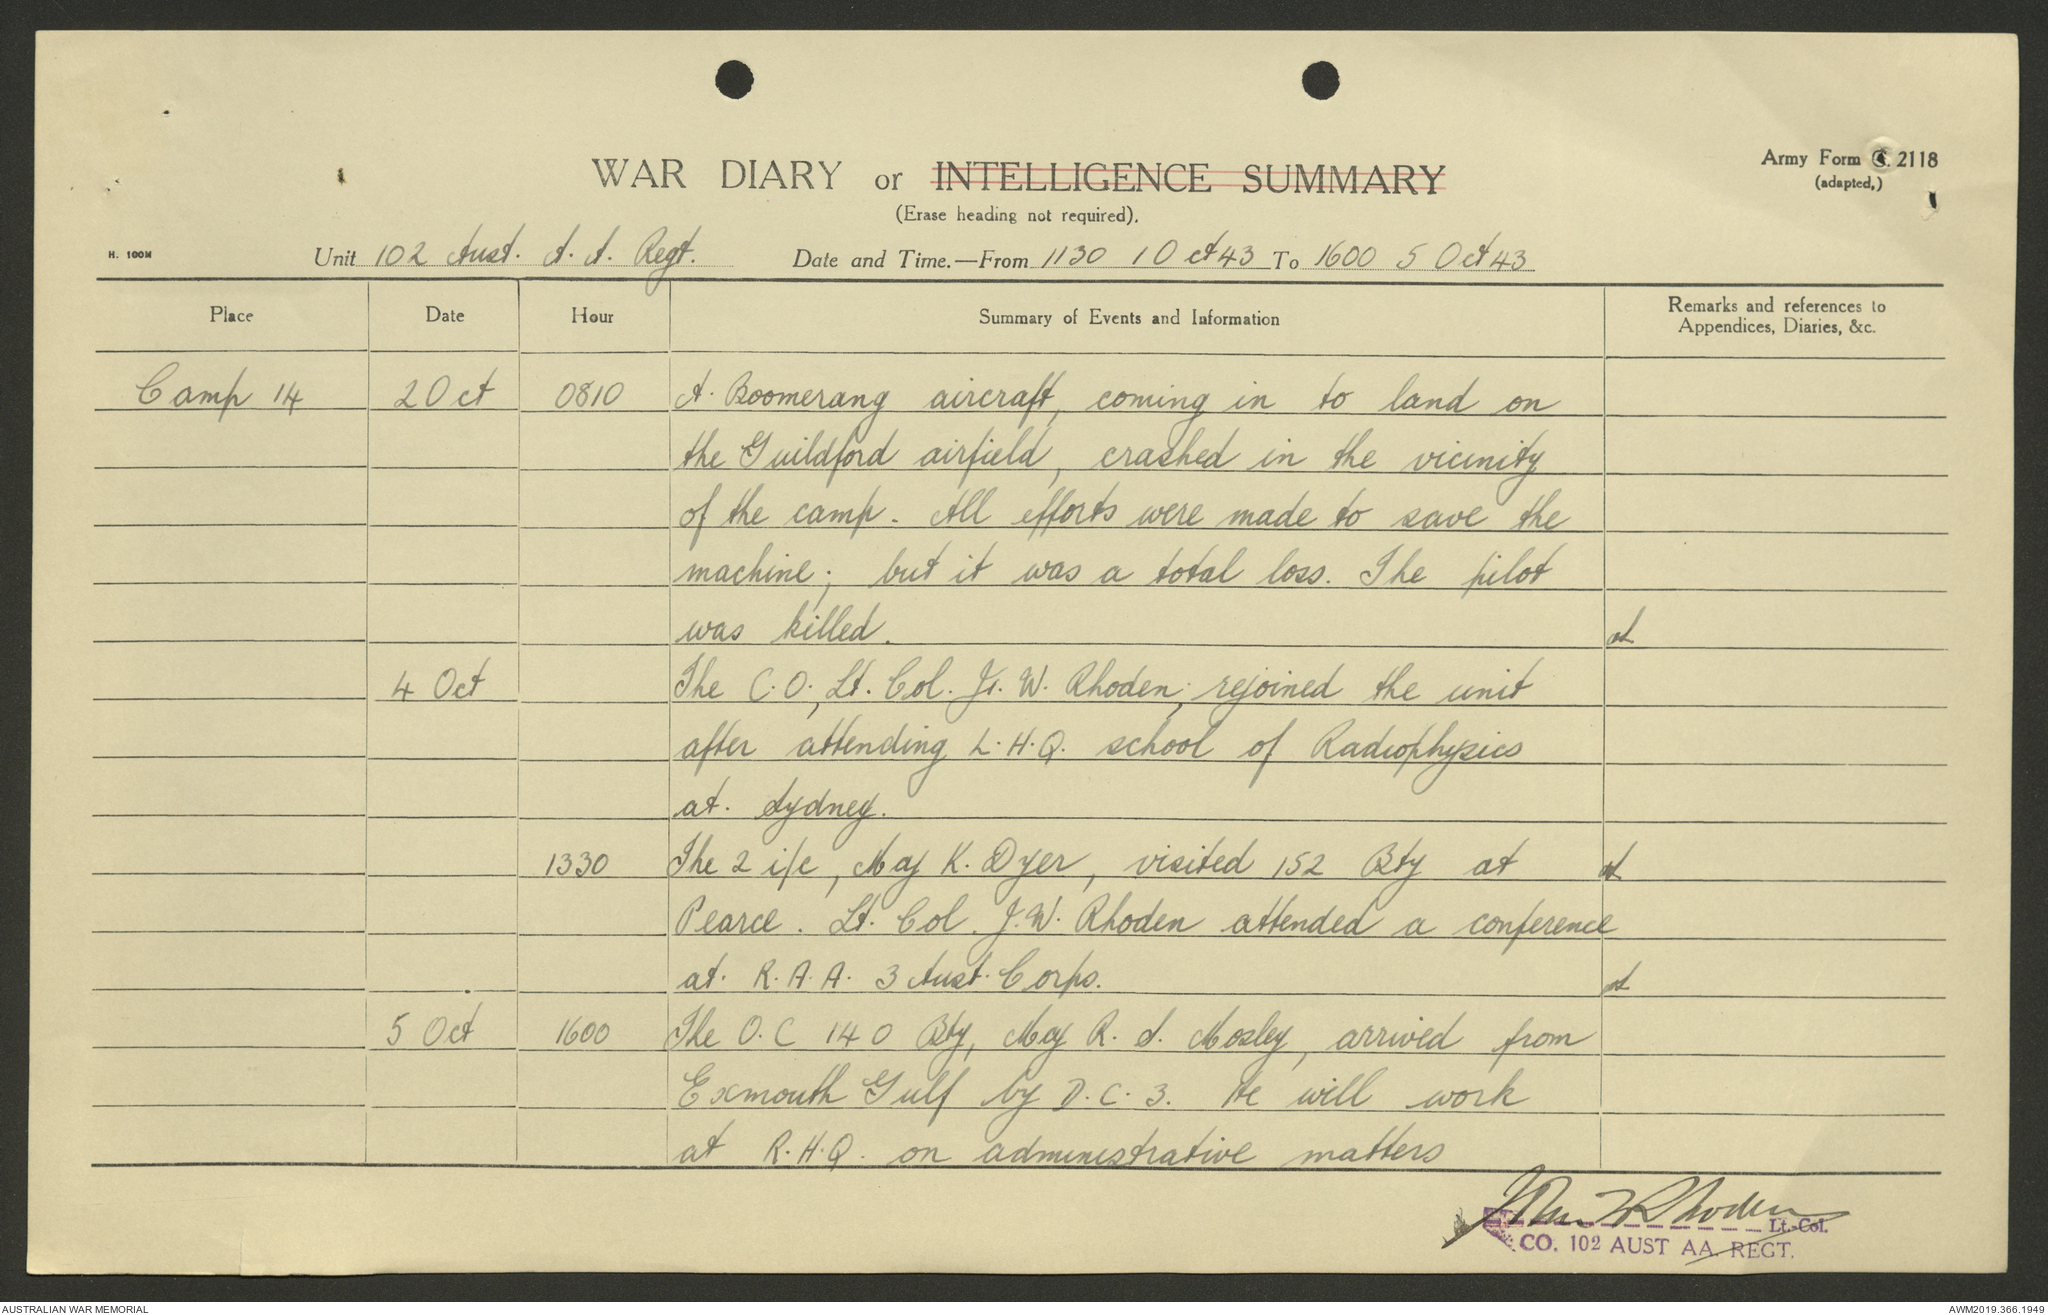 Army Form C. 2118
(adapted,)
WAR DIARY or INTELLIGENCE SUMMARY
(Erase heading not required).
H. 100M
Unit 102 Aust. A. A. Regt. Date and Time.—From 1130 1 Oct 43 To 1600 5 Oct 43
Place Date Hour Summary of Events and Information Remarks and references to
Appendices, Diaries, &c.
Camp 14 2 Oct 0810 A. Boomerang aircraft, coming in to land on
the Guildford airfield, crashed in the vicinity
of the camp. All efforts were made to save the
machine; but it was a total loss. The pilot
was killed.
4 Oct The C.O., Lt. Col. J. W. Rhoden, rejoined the unit
after attending L.H.Q. school of Radiophysics
at. Sydney.
1330 The 2 i/c, Maj K. Dyer, visited 152 Bty at
Pearce. Lt. Col. J.W. Rhoden attended a conference
at. R.A.A. 3 Aust. Corps.
5 Oct 1600 The O.C 140 Bty, Maj R. S. Mosley, arrived from
Exmouth Gulf by D.C.3. He will work
at R.H.Q. on administrative matters
Rhoden Lt.-Col.
CO. 102 AUST AA. REGT.
AUSTRALIAN WAR MEMORIAL AWM2019.366.1949